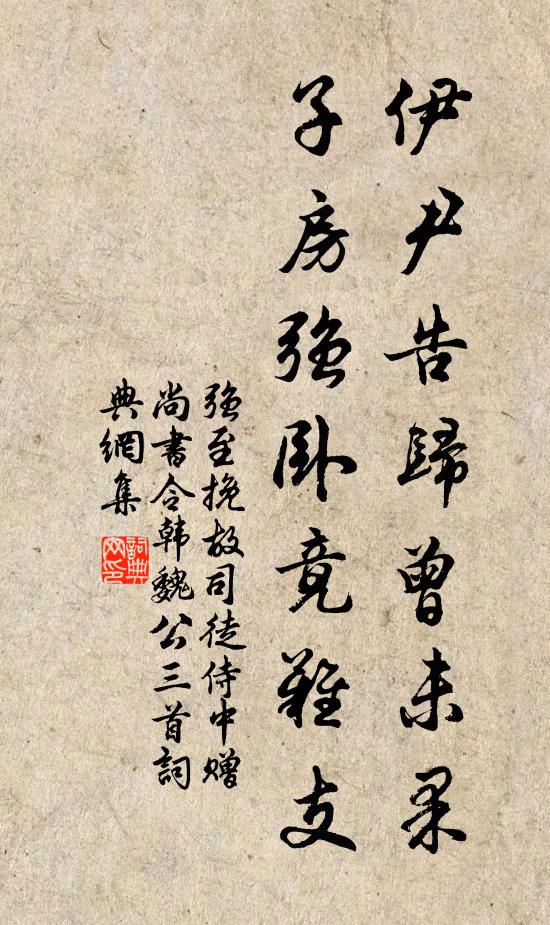 伊尹告歸曾未果
子房強臥竟難支
強至挽故司徒侍中贈
尚書令韓魏公三首詞
典網集
詞典
网印